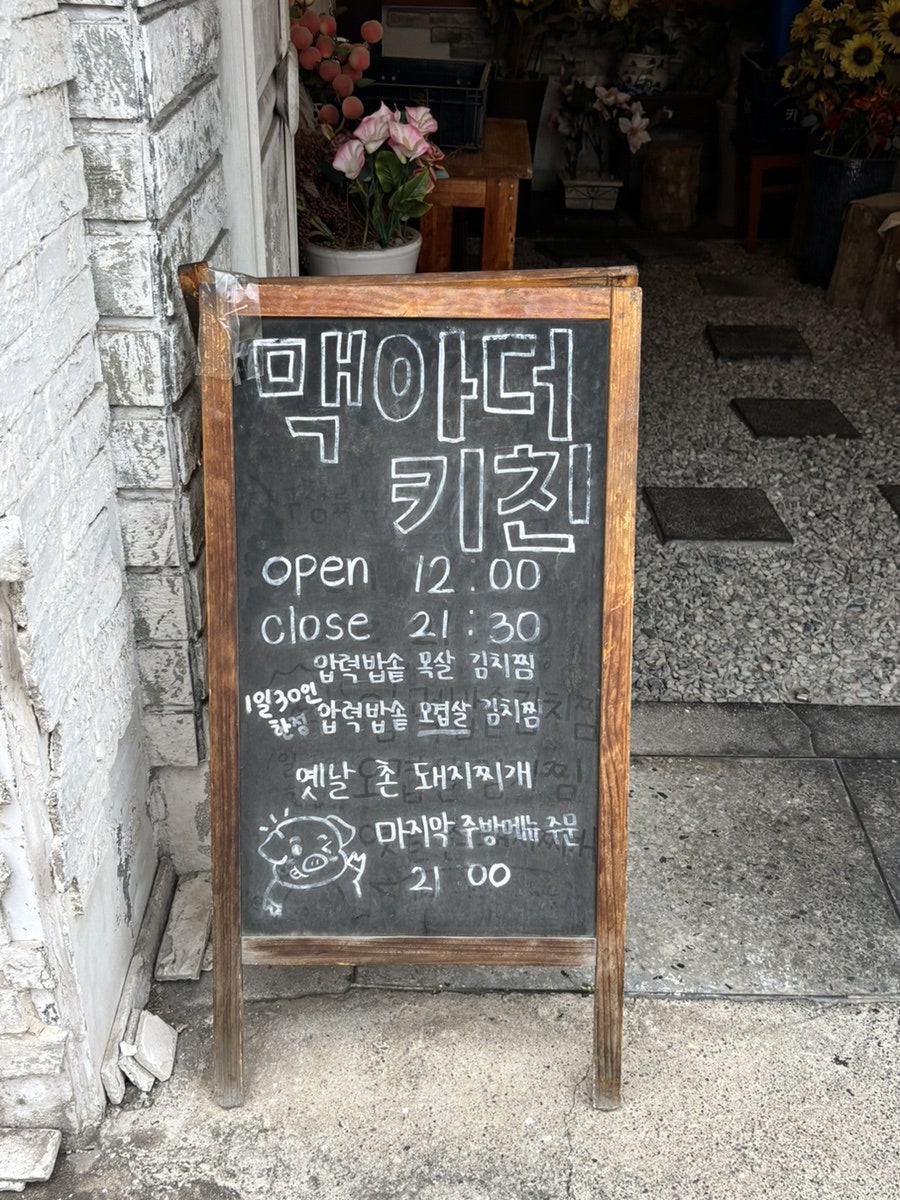 맥아더
키친
open 12:00
close 21:30
압력밥솥 목살 김치찜
1일 30인
한정
압력밥솥 오겹살 김치찜
옛날 촌 돼지찌개
마지막 주방메뉴 주문
21 00
키